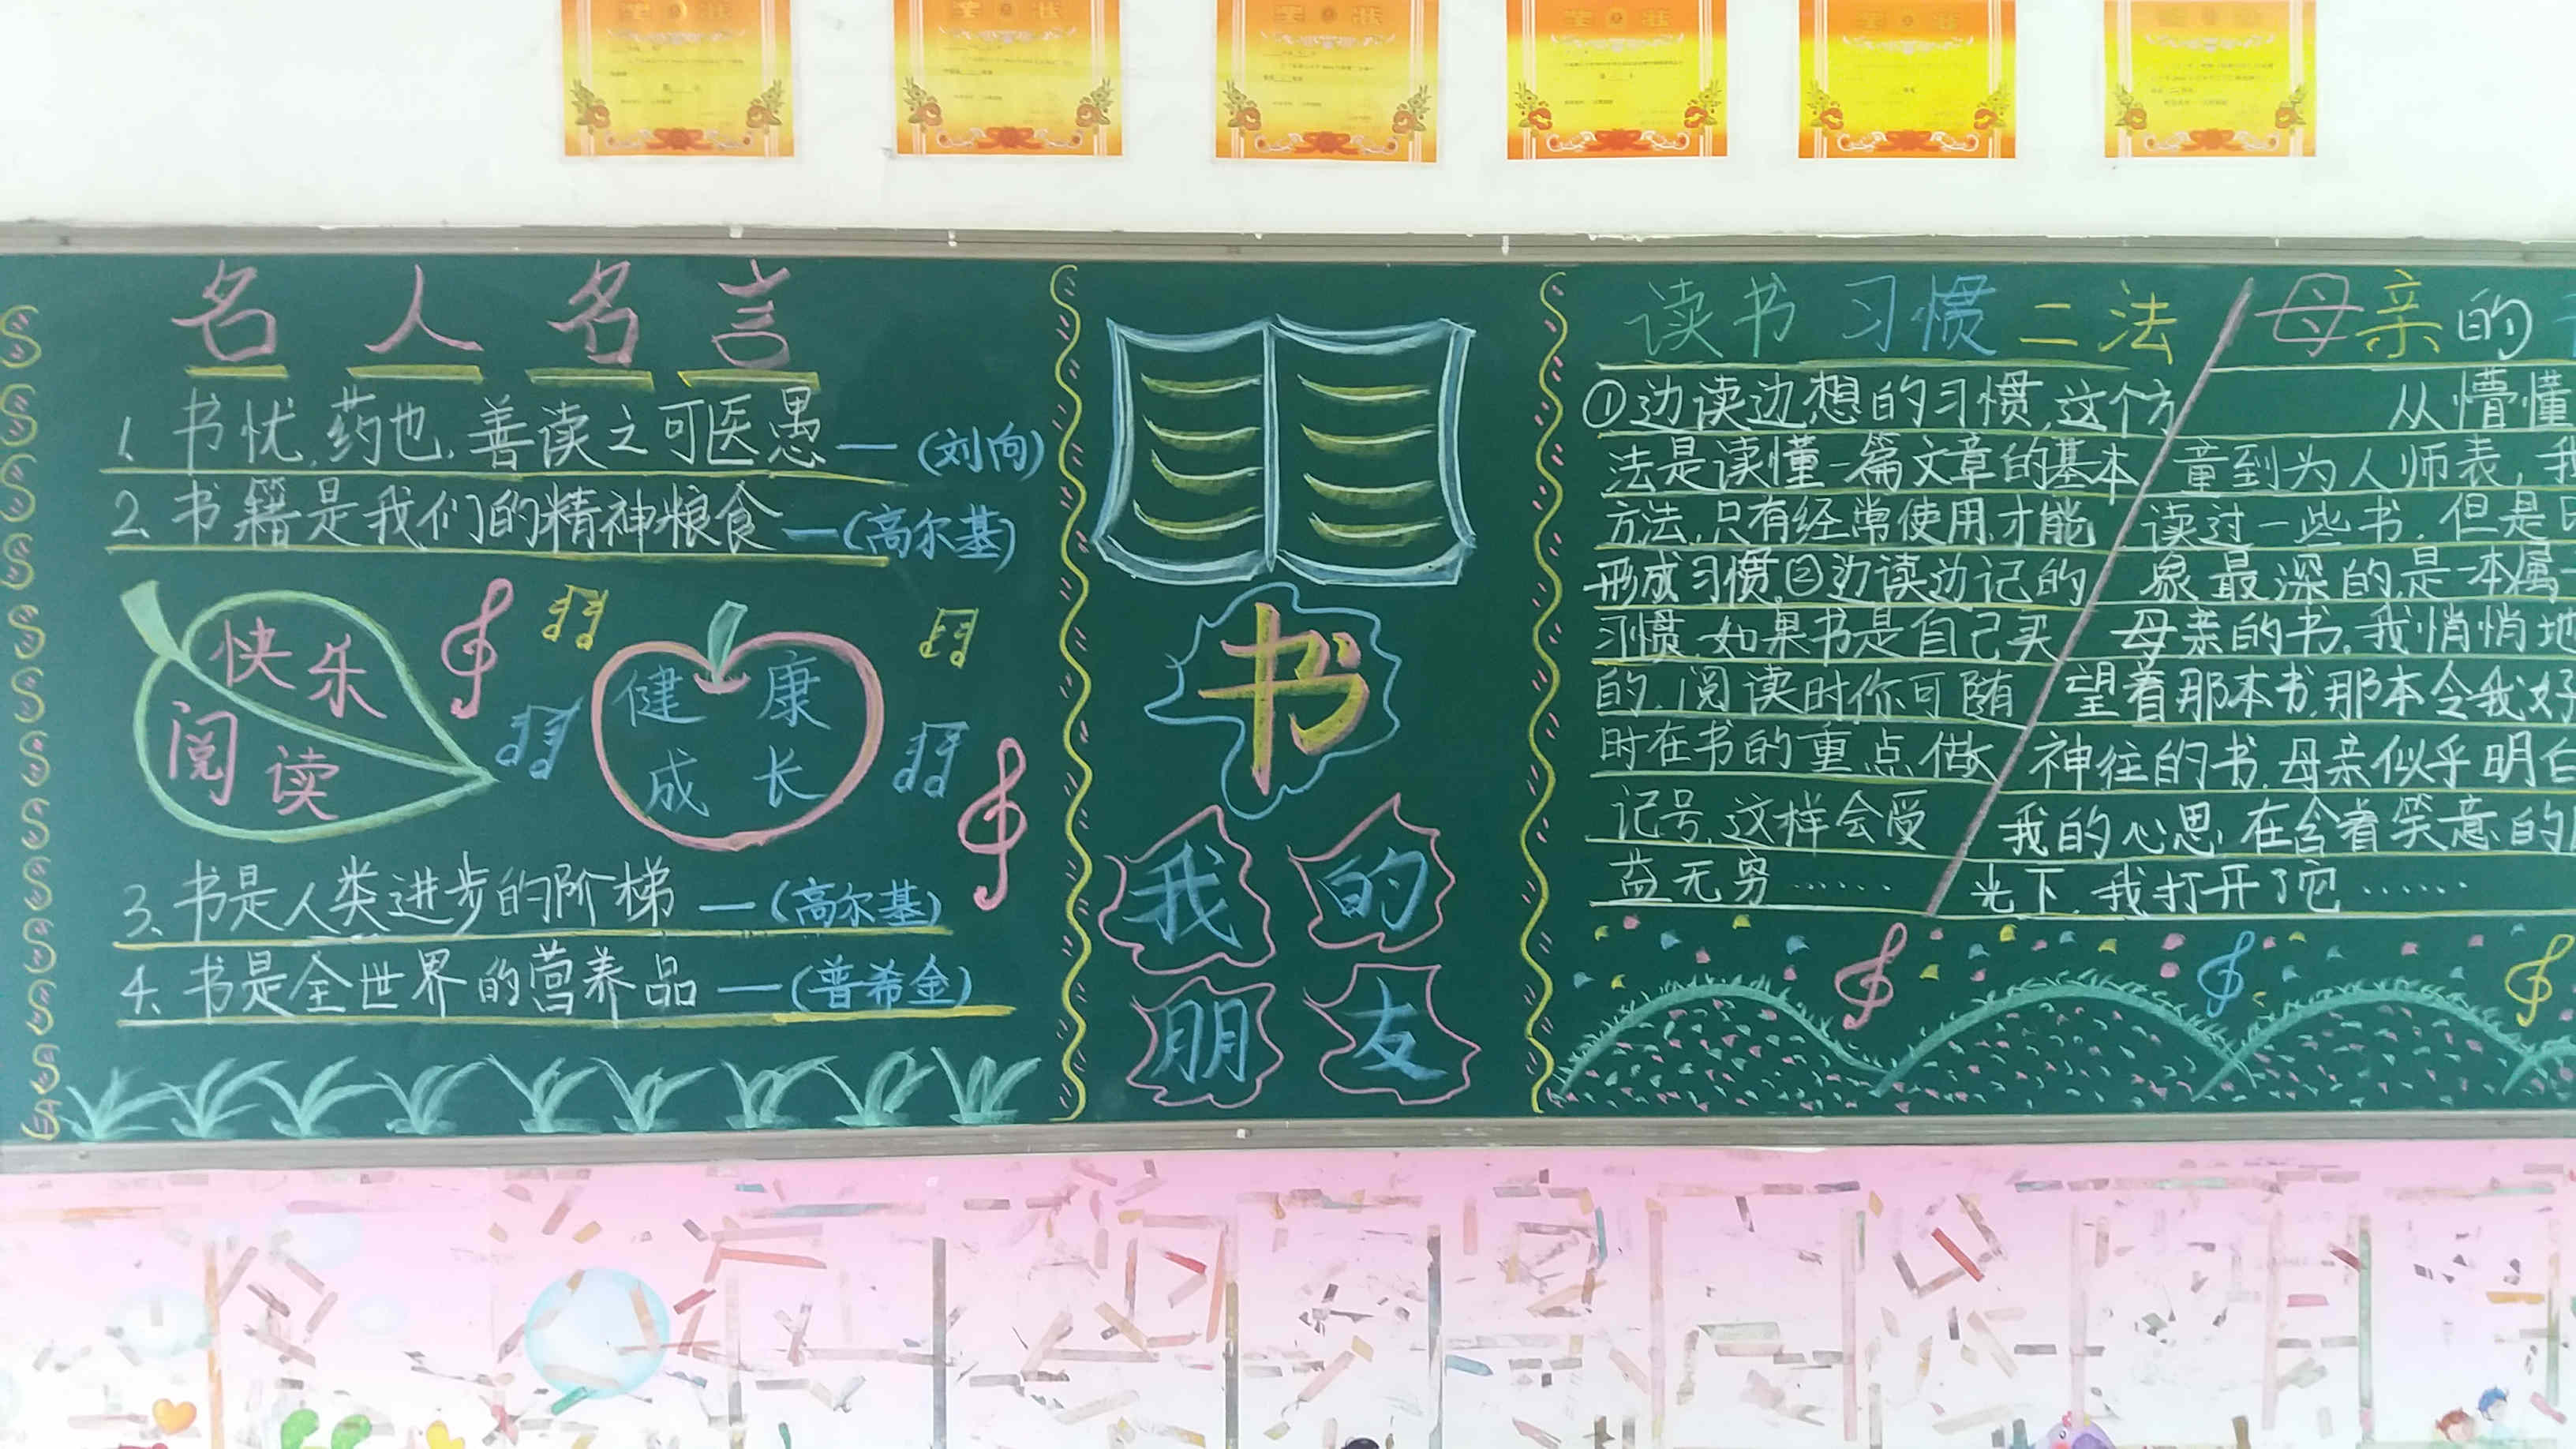 名人名言
1. 书忧，药也，善读之可医愚——(刘向)
2. 书籍是我们的精神粮食——(高尔基)
快乐
阅读
健康
成长
3. 书是人类进步的阶梯——(高尔基)
4. 书是全世界的营养品——(普希金)
书
我的
朋友
读书习惯二法
①边读边想的习惯，这个方
法是读懂一篇文章的基本
方法，只有经常使用，才能
形成习惯，②边读边记的
习惯，如果书是自己买
的，阅读时你可随
时在书的重点做
记号，这样会受
益无穷……
母亲的
从懵懂
童到为人师表，我
读过一些书，但是
象最深的是一本属
母亲的书，我悄悄地
望着那本书，那本令我好
神往的书，母亲似乎明白
我的心思，在含着笑意的
光下，我打开了它……